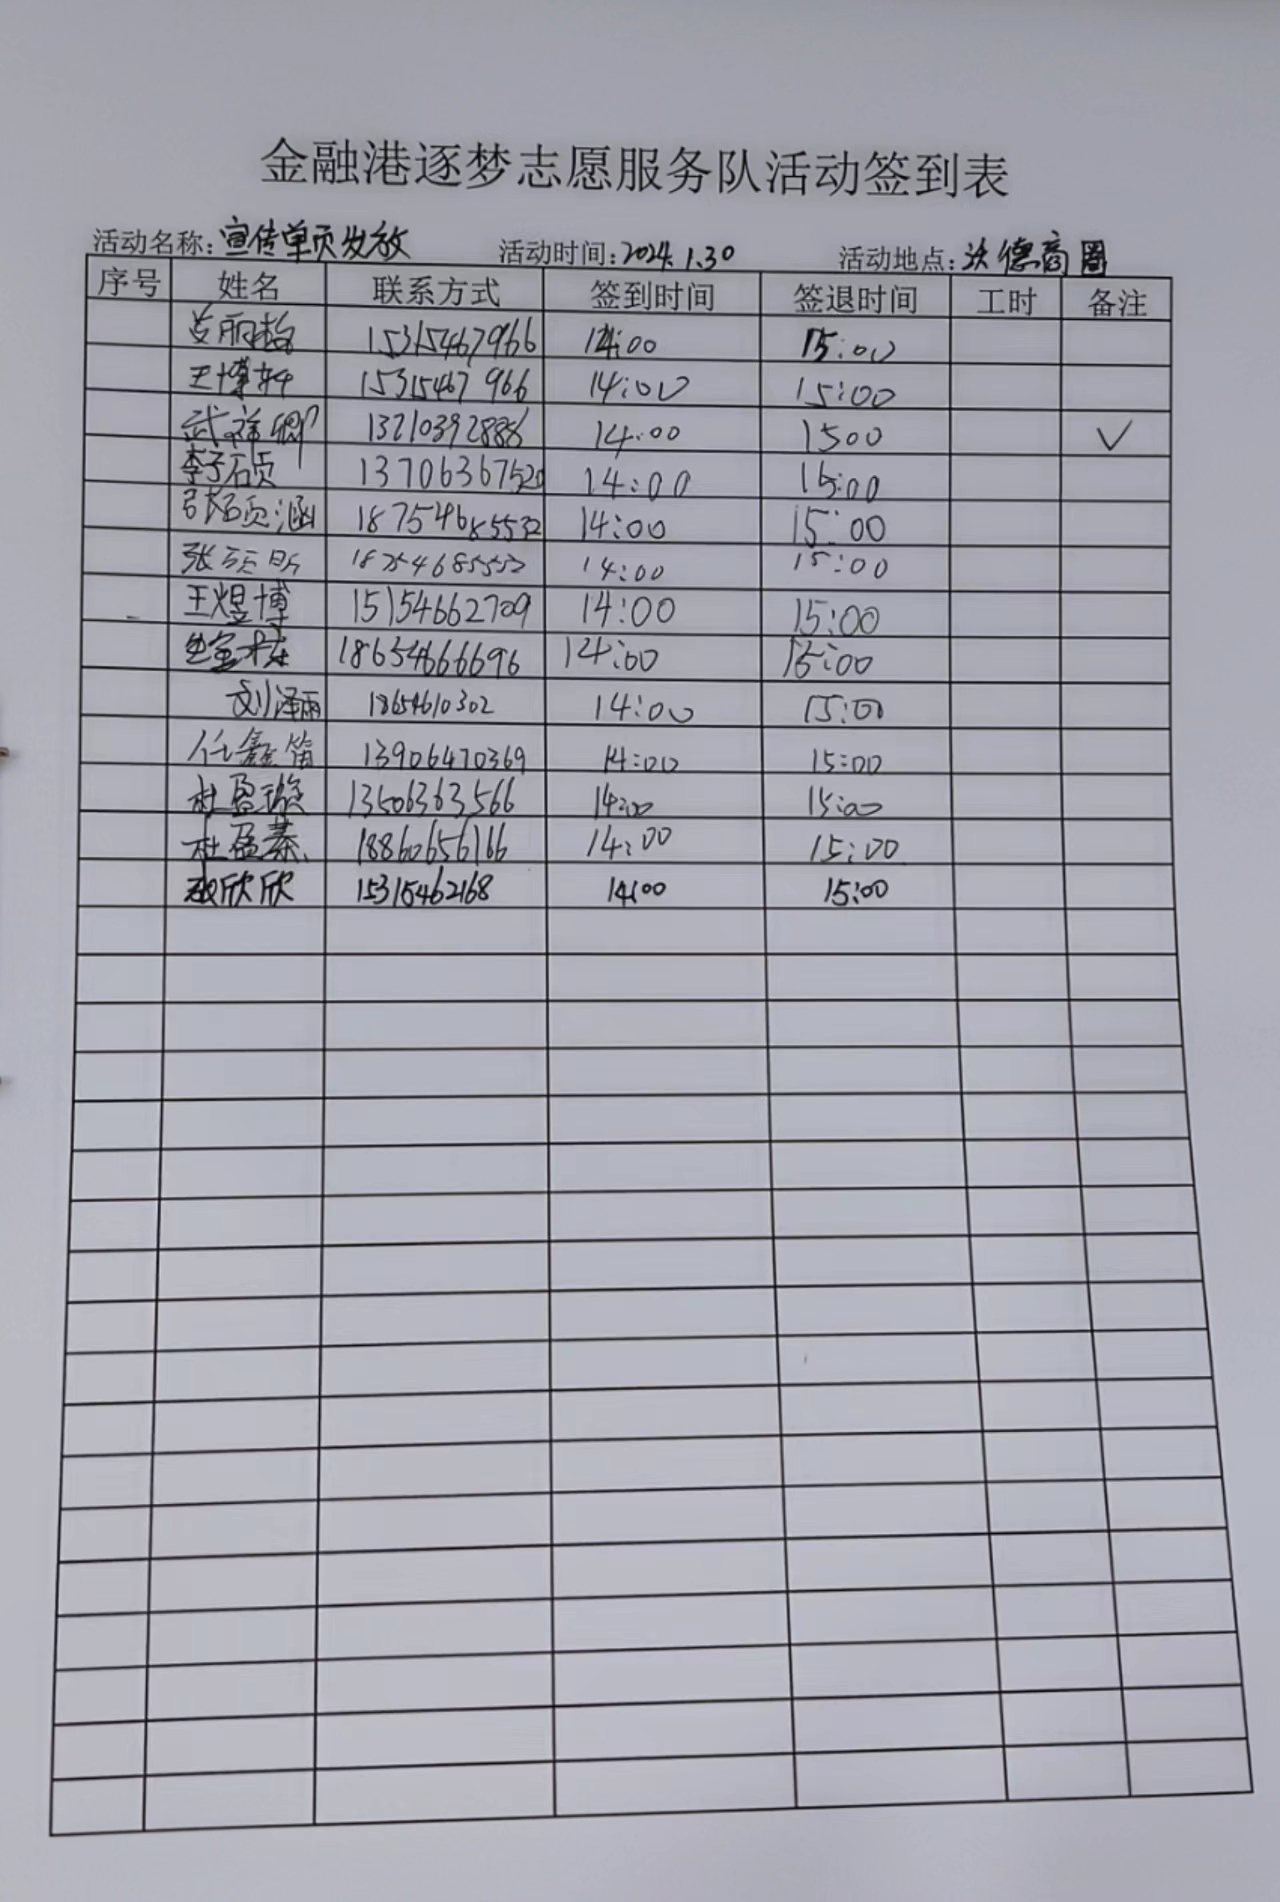 金融港逐梦志愿服务队活动签到表
活动名称:宣传单页发放 活动时间:2024.1.30 活动地点:沃德商圈
序号 姓名 联系方式 签到时间 签退时间 工时 备注
15315467966 14:00 15:00
王博轩 15315467966 14:00 15:00
武祥卿 13210392886 14:00 1500 ✓
李子硕 13706367520 14:00 15:00
张硕涵 18754685532 14:00 15:00
张硕昕 18754685532 14:00 15:00
王煜博 15154662709 14:00 15:00
18654666696 14:00 15:00
刘泽雨 18654610302 14:00 15:00
任鑫笛 13906470369 14:00 15:00
杜盈璇 13506363566 14:00 15:00
杜盈蓁 18860656166 14:00 15:00
欣欣 15315462168 14:00 15:00